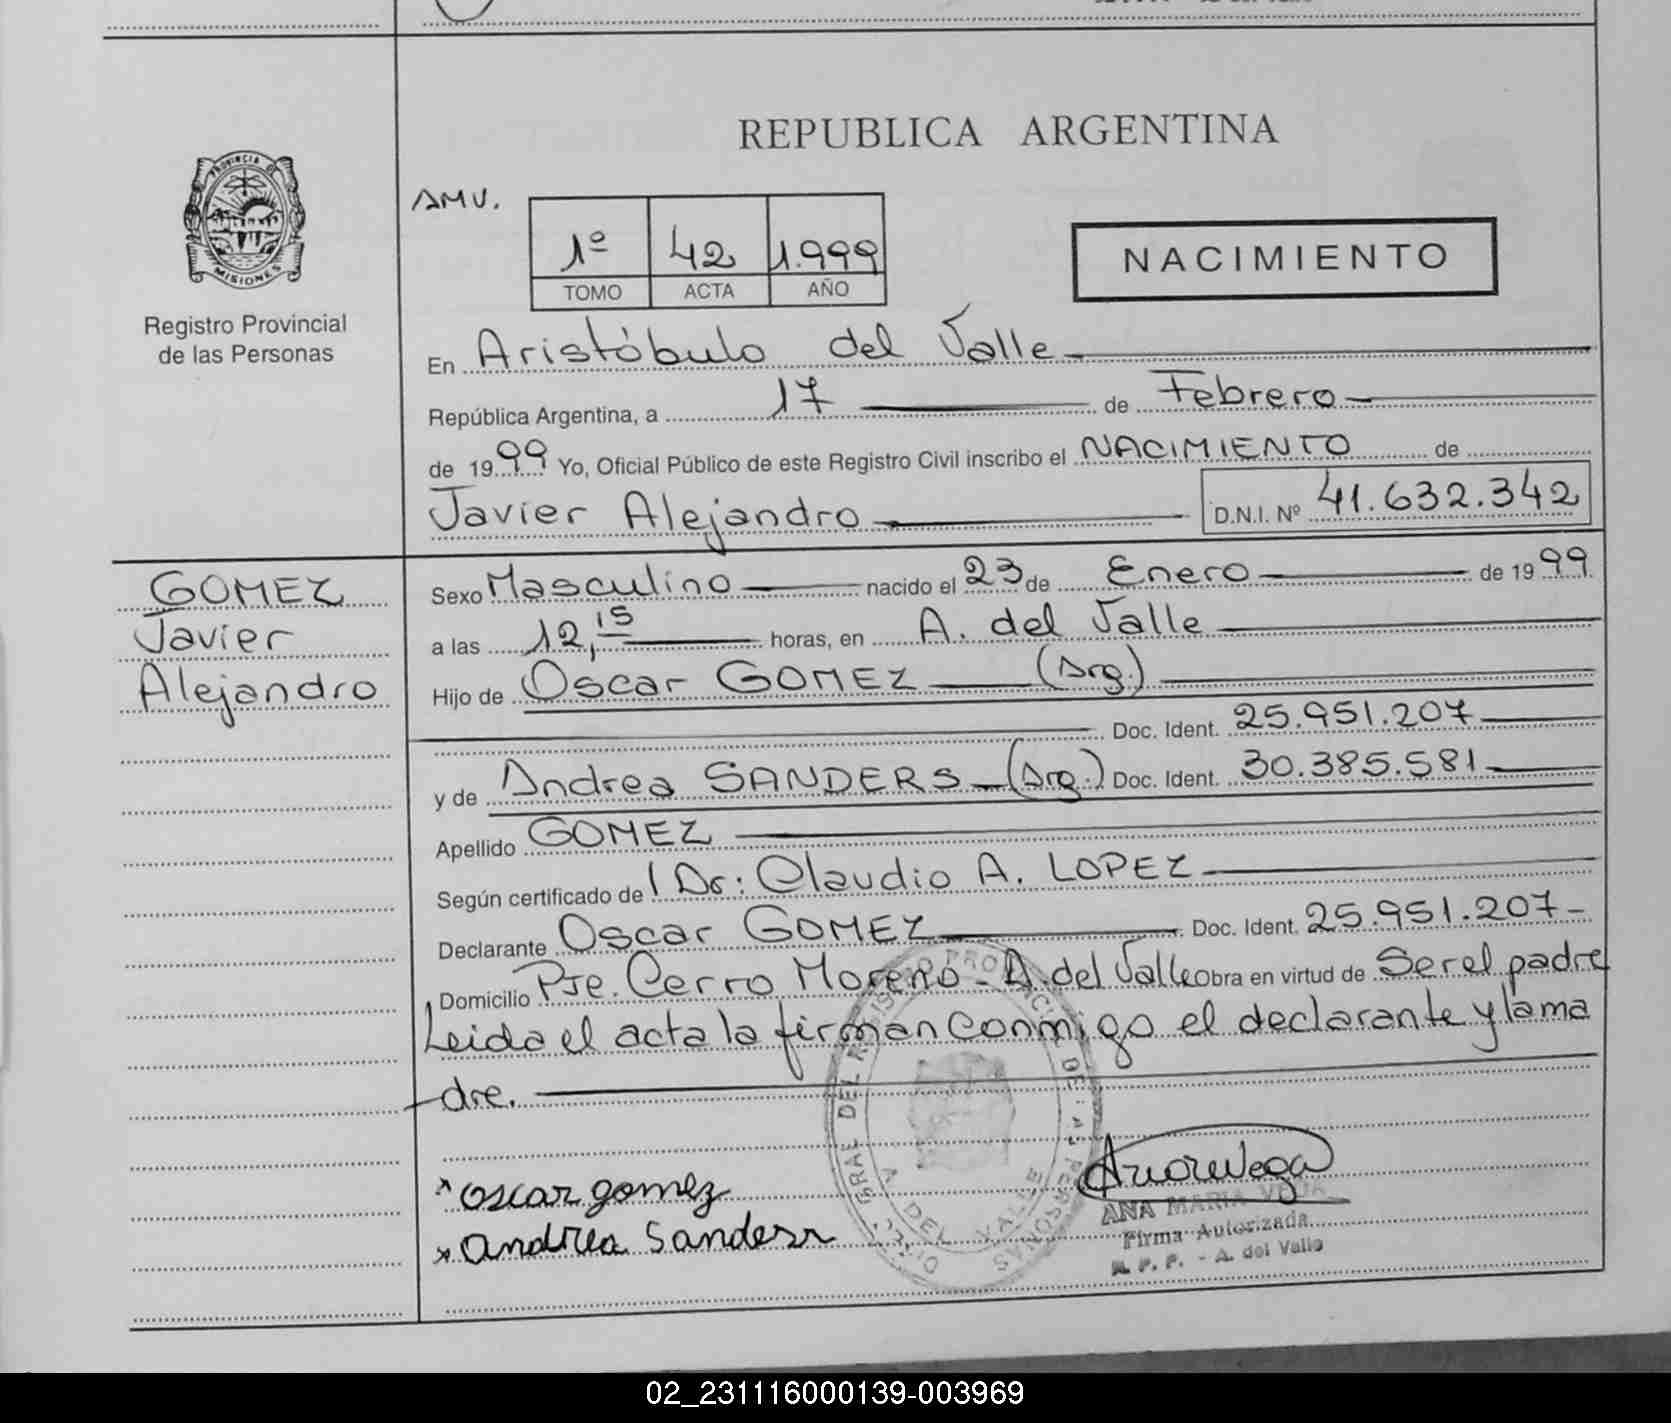 REPUBLICA ARGENTINA
PROVINCIA DE
MISIONES
Registro Provincial
de las Personas
AMV.
1º 42 1.999
TOMO ACTA AÑO
NACIMIENTO
En Aristóbulo del Valle
República Argentina, a 17 de Febrero
de 1999 Yo, Oficial Público de este Registro Civil inscribo el NACIMIENTO de
Javier Alejandro D.N.I. Nº 41.632.342
GOMEZ
Javier
Alejandro
Sexo Masculino nacido el 23 de Enero de 1999
a las 12,15 horas, en A. del Valle
Hijo de Oscar GOMEZ (Arg.)
Doc. Ident. 25.951.207
y de Andrea SANDERS (Arg.) Doc. Ident. 30.385.581
Apellido GOMEZ
Según certificado de Dr: Claudio A. LOPEZ
Declarante Oscar GOMEZ Doc. Ident. 25.951.207-
Domicilio Pje. Cerro Moreno - A. del Valle obra en virtud de Ser el padre
Leida el acta la firman conmigo el declarante y la ma
dre.
oscar gomez
andrea Sanders
A DEL VALLE
ANA MARIA VEGA
Firma Autorizada
R. P. P. - A. del Valle
02_231116000139-003969